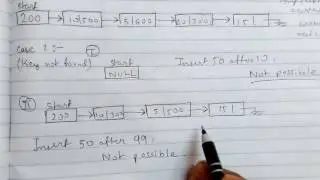 Start
200 10|500 5|600 10|300 15|
Case 1 :-
(Key not found) I Start Insert 50 after 10,
NULL Not possible
II Start
200 10|300 5|500 15|
Insert 50 after 99,
Not possible